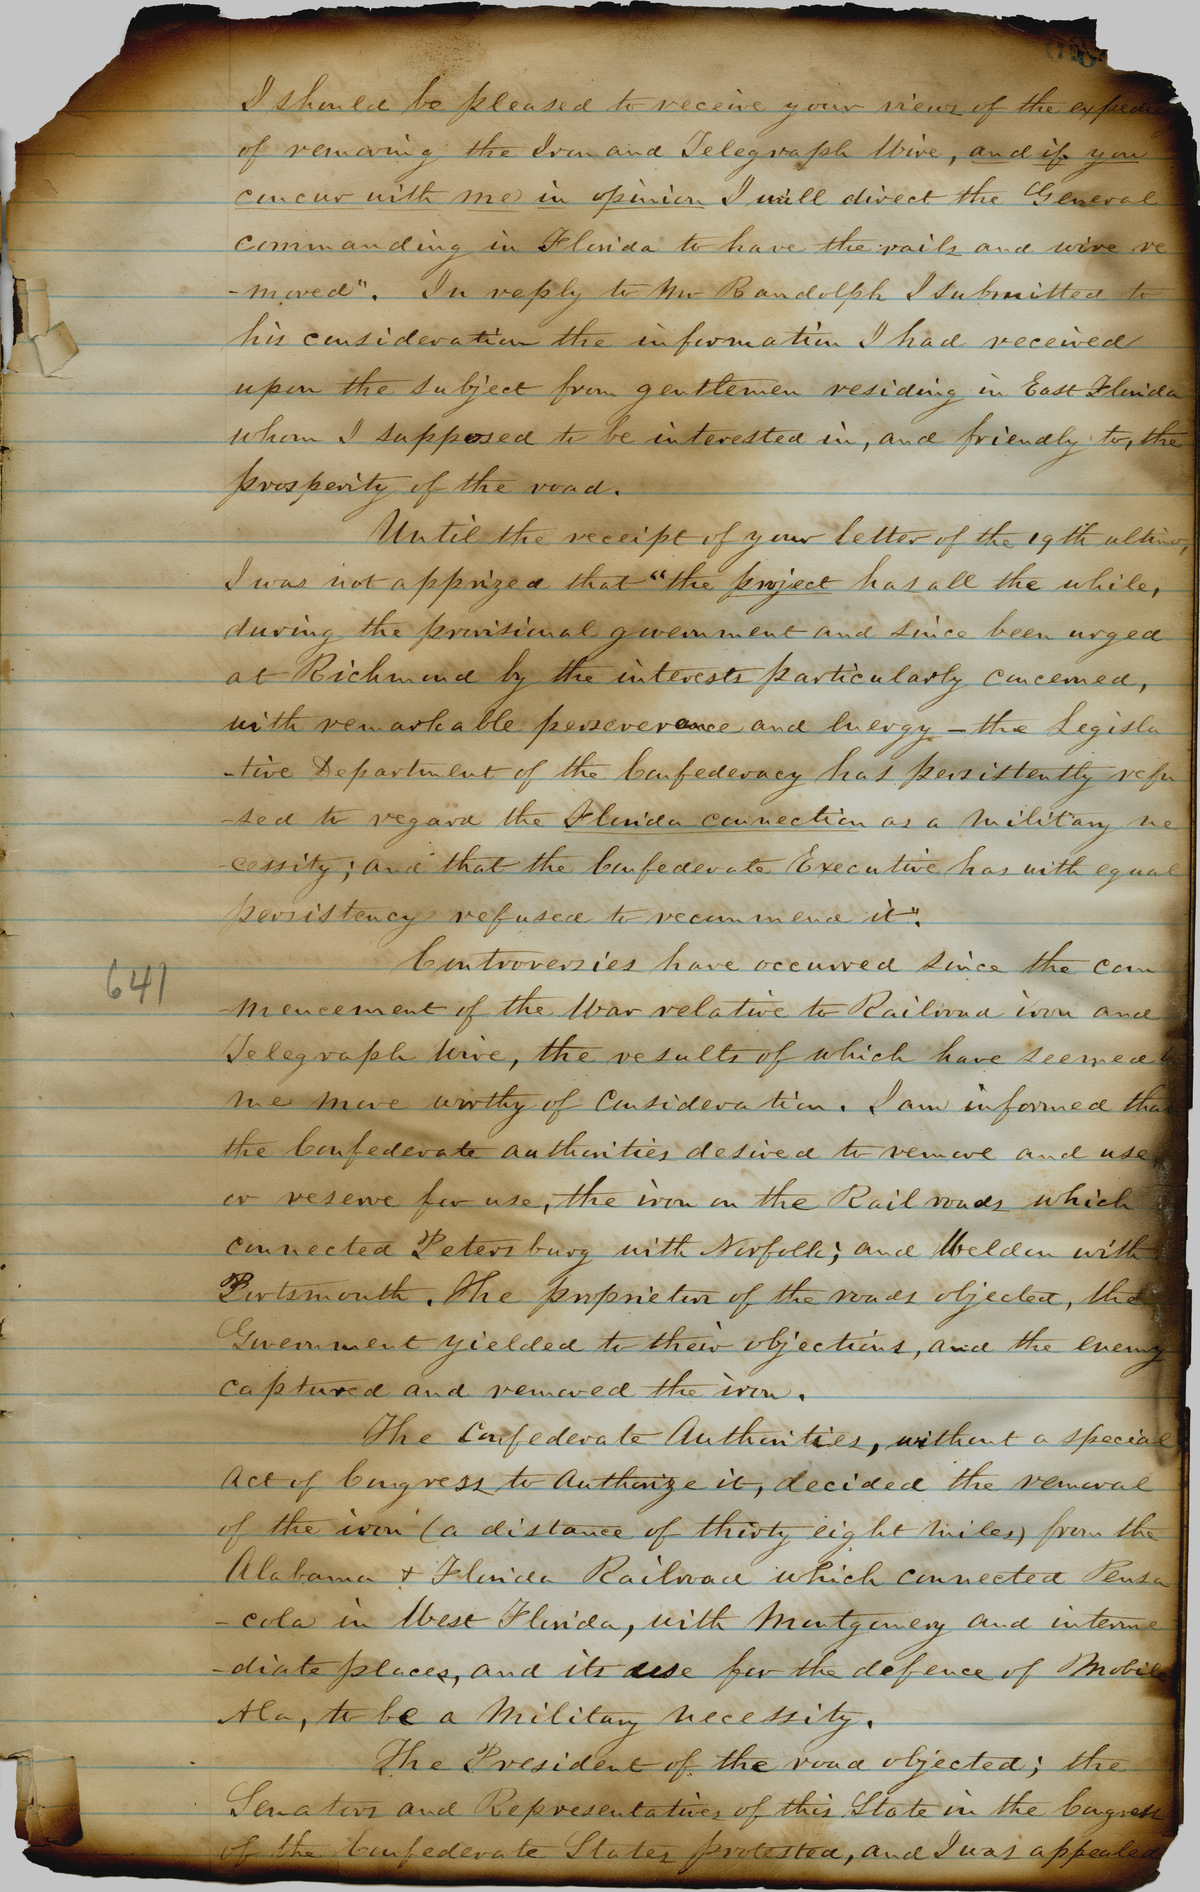 I should be pleased to receive your views of the
of removing the Iron and Telegraph Wire, and if you
concur with me in opinion I will direct the General
commanding in Florida to have the rails and wire re
-moved". In reply to Mr Randolph I submitted to
his consideration the information I had received
upon the subject from gentlemen residing in East Florida
whom I supposed to be interested in, and friendly to, the
prosperity of the road.
Until the receipt of your letter of the 19th ultimo,
I was not apprized that "the project has all the while,
during the provisional government and since been urged
at Richmond by the interests particularly concerned,
with remarkable perseverance and energy – the Legisla
-tive Department of the Confederacy has persistently refu
-sed to regard the Florida connection as a military ne
-cessity; and that the Confederate Executive has with equal
persistency refused to recommend it".
Controversies have occurred since the com
641
-mencement of the War relative to Railroad iron and
Telegraph Wire, the results of which have seemed
me more worthy of consideration. I am informed that
the Confederate authorities desired to remove and use
or reserve for use, the iron on the Rail roads which
connected Petersburg with Norfolk; and Weldon with
Portsmouth. The proprietors of the roads objected, the
Government yielded to their objections, and the enemy
captured and removed the iron.
The Confederate Authorities, without a special
Act of Congress to Authorize it, decided the removal
of the iron (a distance of thirty eight miles) from the
Alabama & Florida Railroad which connected Pensa
-cola in West Florida, with Montgomery and interme
-diate places, and its use for the defence of Mobile
Ala, to be a Military necessity.
The President of the road objected; the
Senators and Representatives of this State in the Congress
of the Confederate States protested, and I was appealed